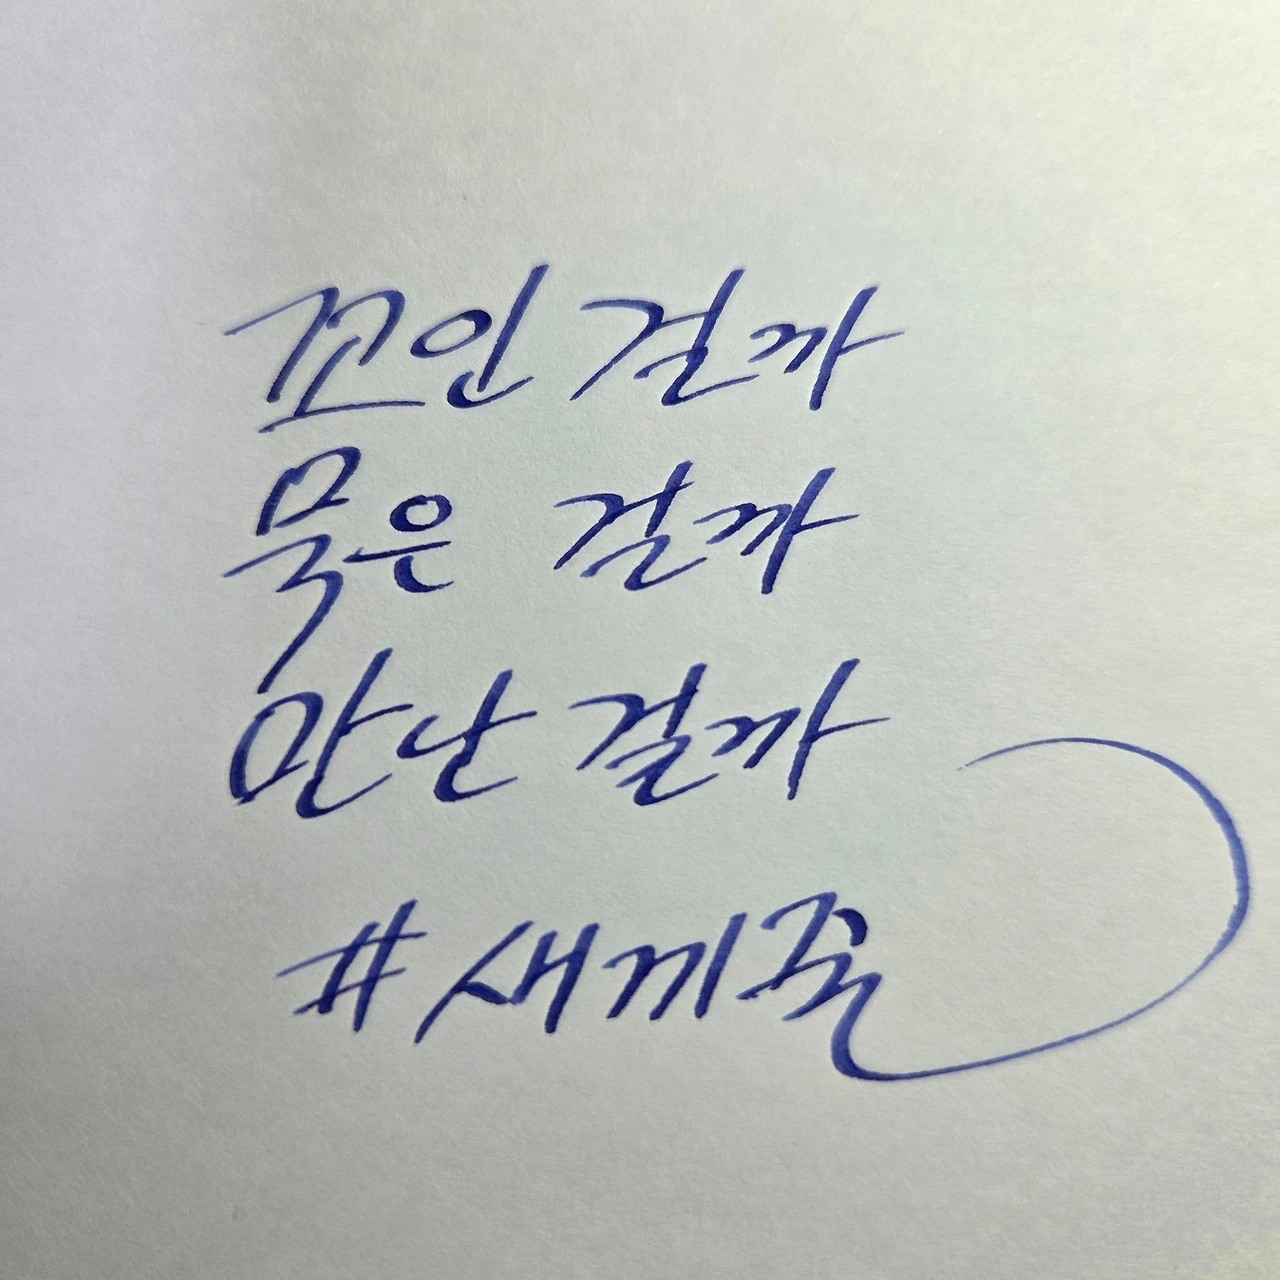 꼬인 걸까
묶은 걸까
만난 걸까
#새끼줄